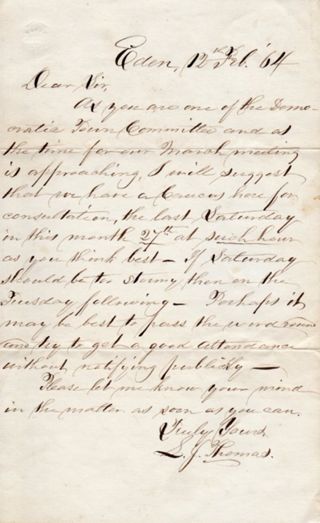 Eden, 12th Feb. '64
Dear Sir,
As you are one of the Demo-
cratic Town Committee and as
the time for our March meeting
is approaching, I will suggest
that we have a Caucus here for
consultation, the last Saturday
in this month 27th at such hour
as you think best — If Saturday
should be too stormy then on the
Tuesday following — Perhaps it
may be best to pass the word
try to get a good attendance
without notifying publickly —
Please let me know your mind
in the matter as soon as you can.
Truly Yours,
L. J. Thomas.